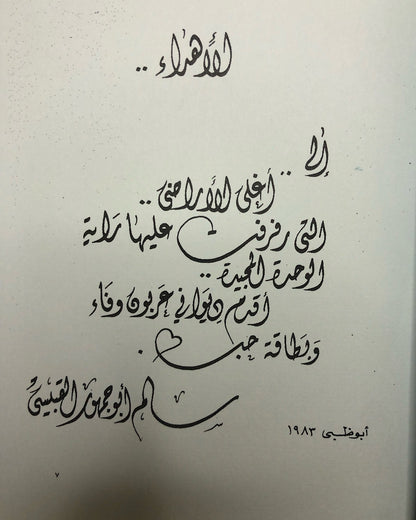 الأهداء ..
إلى ..
أغلى الأراضي ..
التي رفرفت عليها راية
الوحدة المجيدة ..
أقدم ديواني عربون وفاء
وبطاقة حب .
سالم أبو جمهور القبيسي
أبوظبي ١٩٨٣
٧